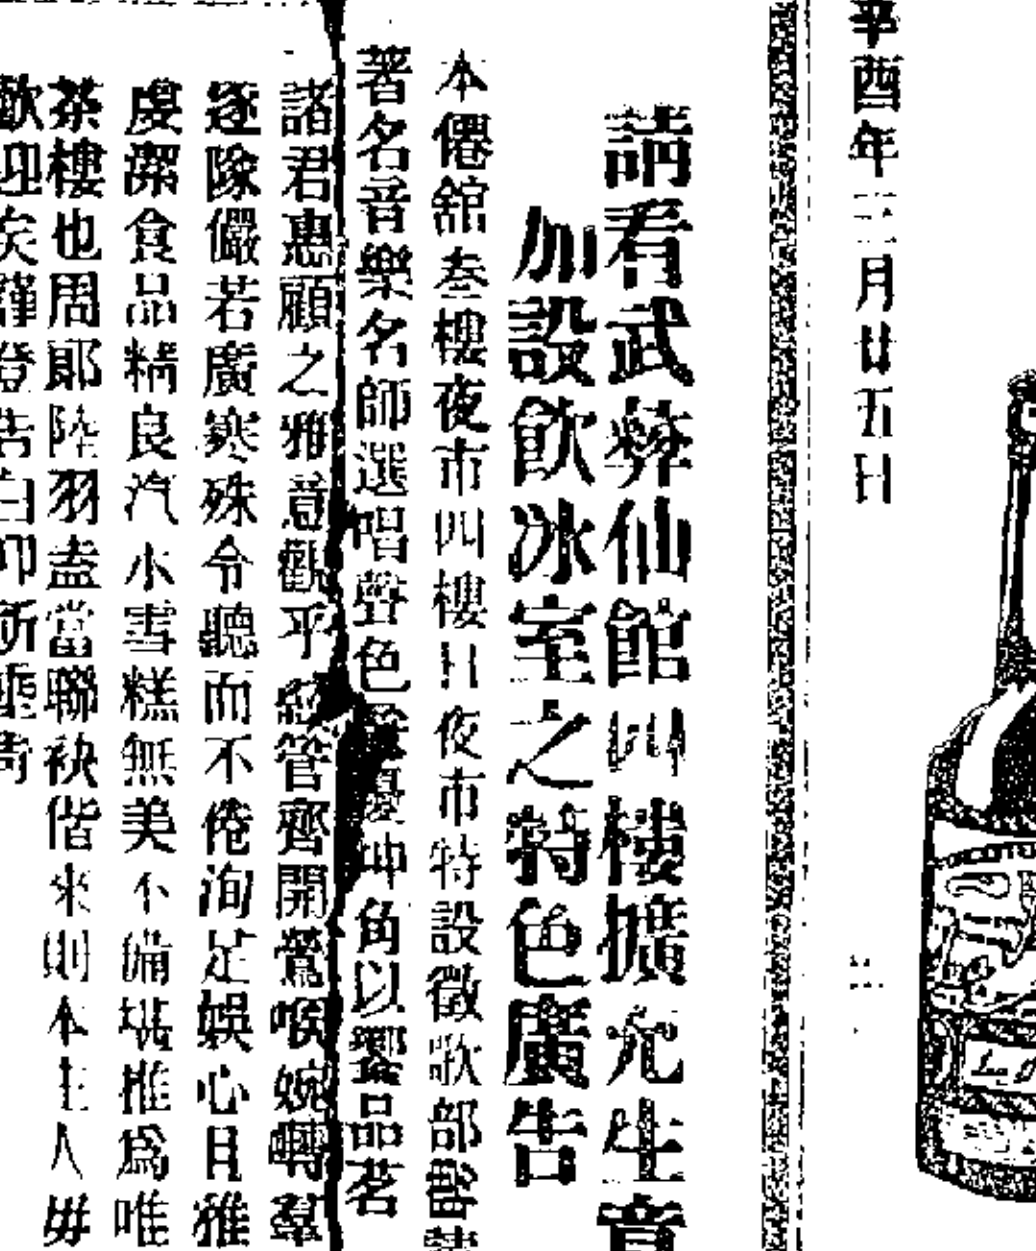 辛酉年三月廿五日
請看武彜仙館四樓擴充生意
加設飲冰室之特色廣告
本僊舘叁樓夜市四樓日夜市特設徵歌部
著名音樂名師選唱聲色優坤角以饗品茗
諸君惠顧之雅意觀乎管齊開鶯喉婉轉羣
逐隊儼若廣寒殊令聽而不倦洵足娛心目雅
虔潔食品精良汽水雪糕無美不備堪推爲唯
茶樓也周郎陸羽盍當聯袂偕來則本主人毋
歡迎矣謹登告白卽所